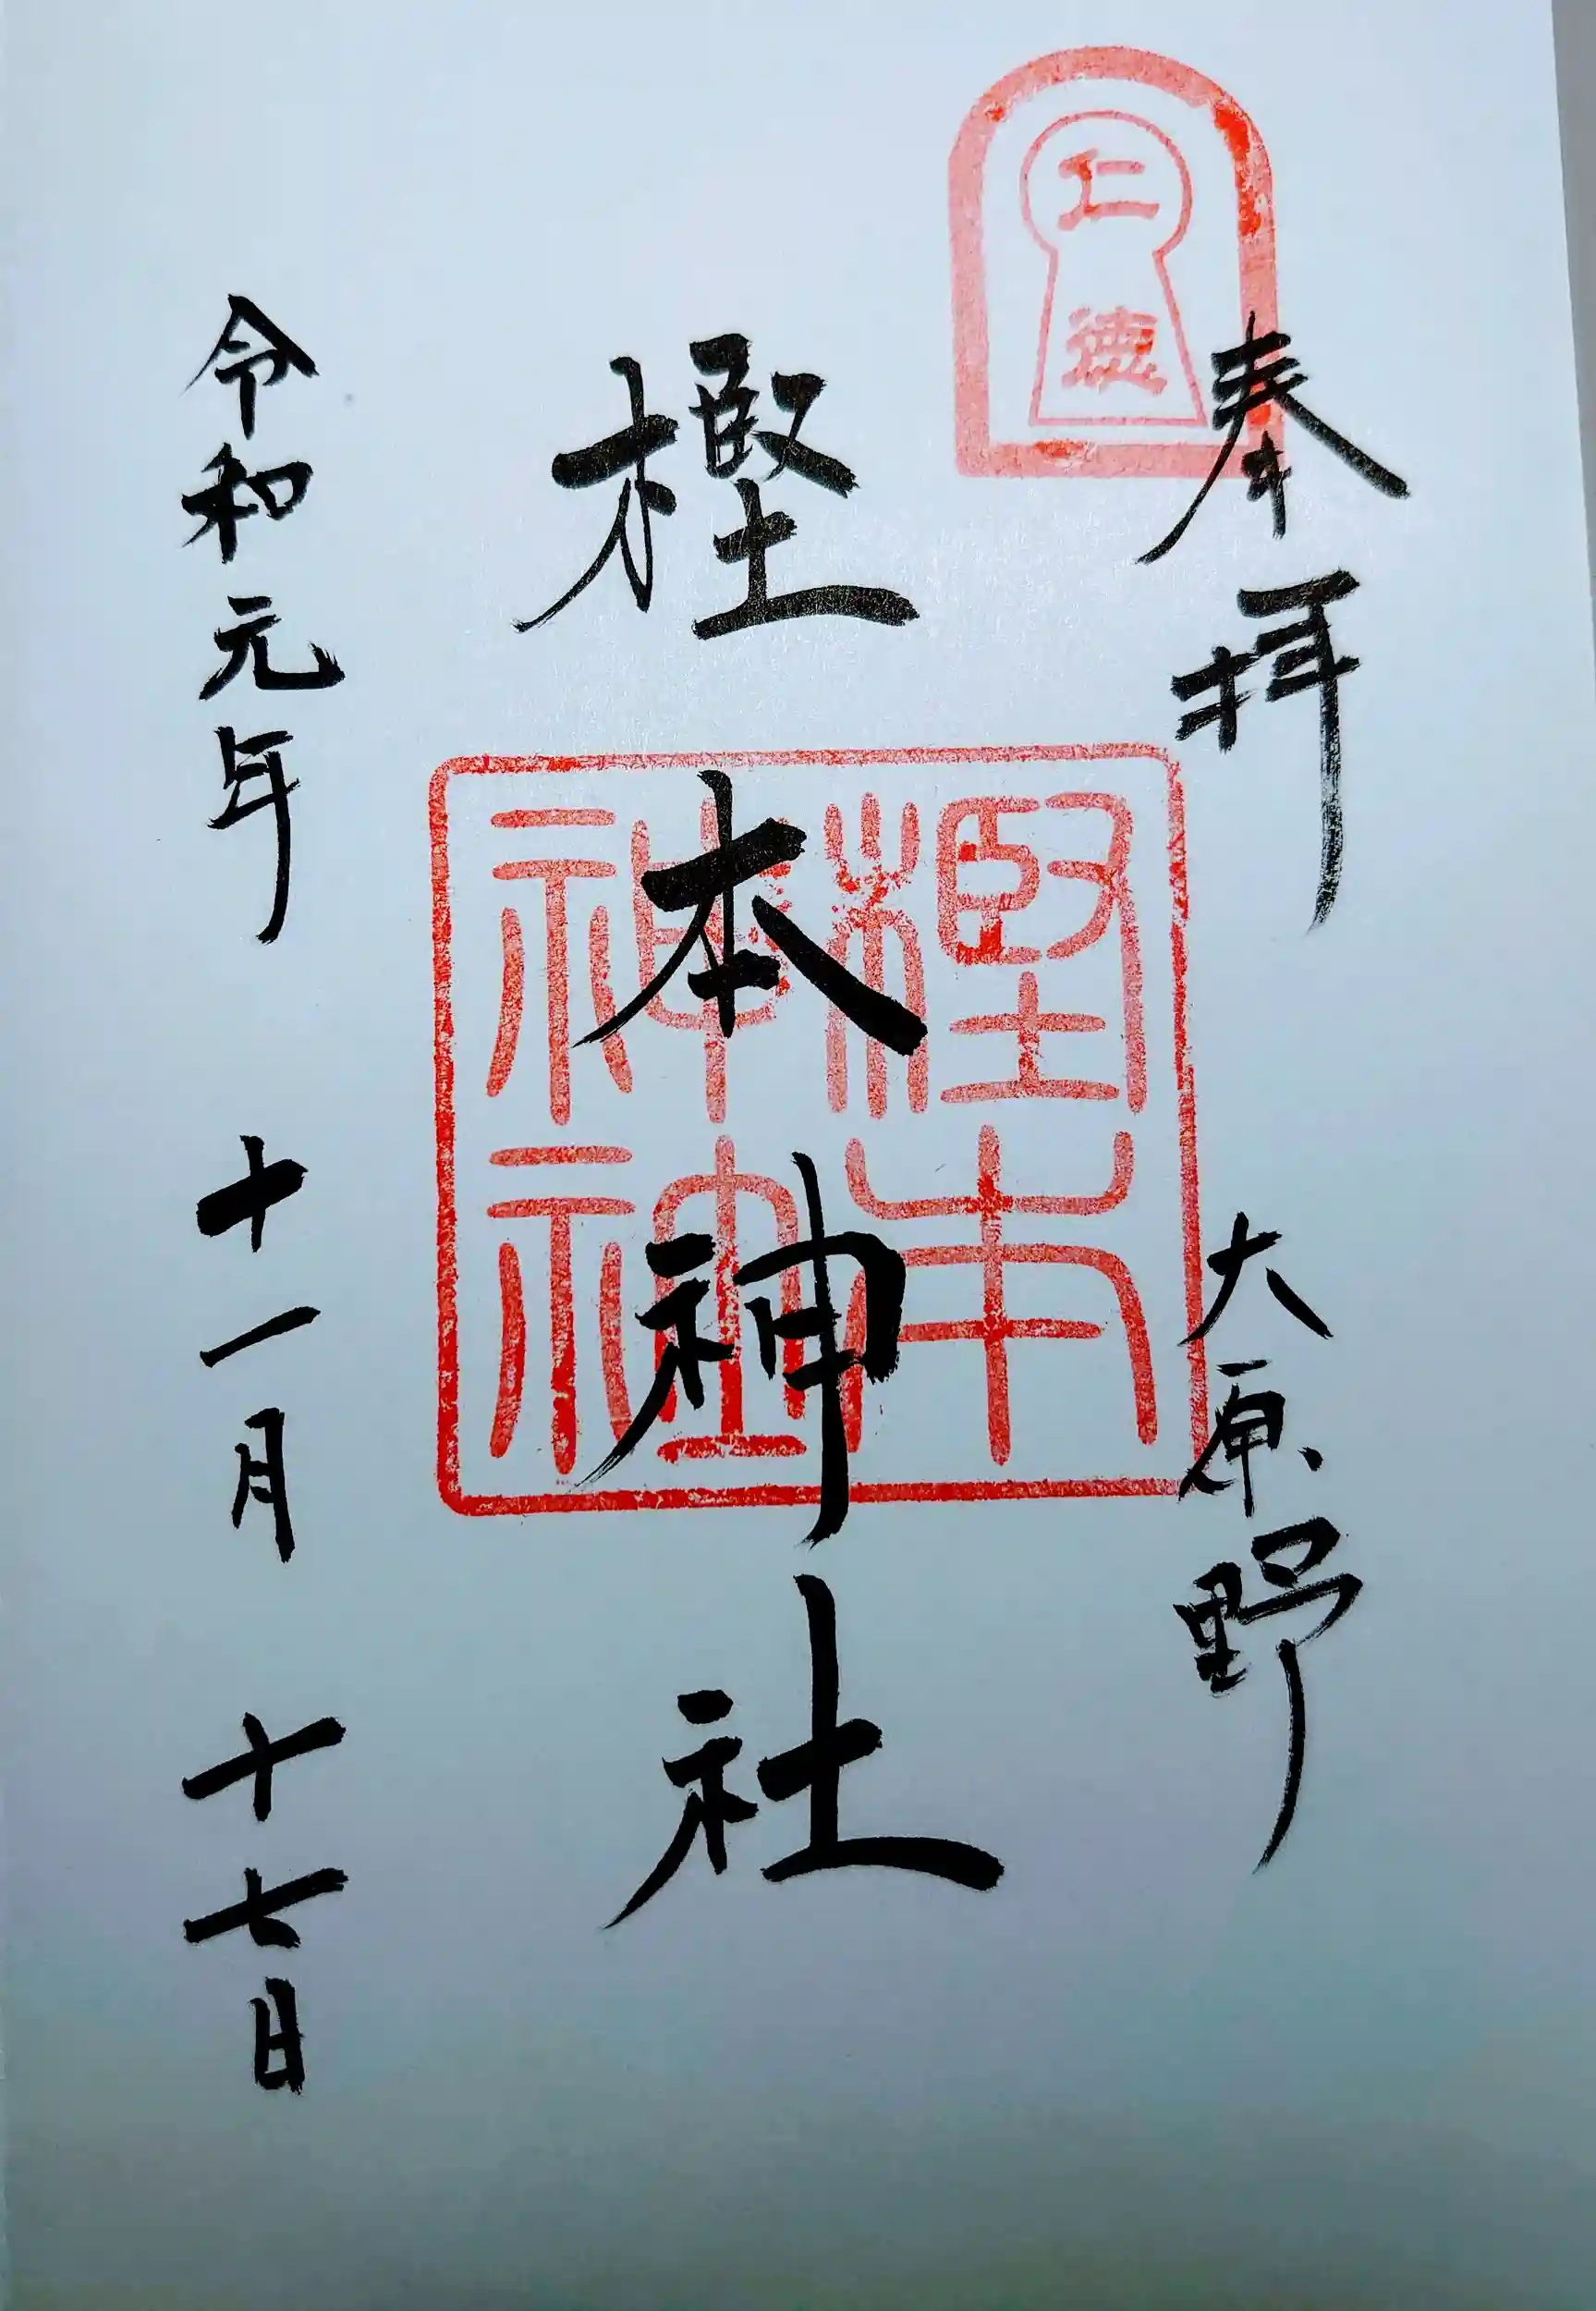 奉拝
大原野
仁
徳
樫本神社
樫本
神社
令和元年 十一月 十七日